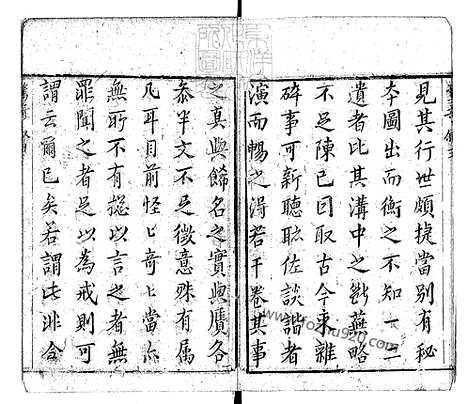 見其行世頗捷當别有秘
夲圖出而衡之不知一二
遺者比其溝中之斷蕪略
不足陳已因取古今来雜
碎事可新聽聣佐談諧者
演而暢之得若干卷其事
之真與餙名之實與贋各
叅半文不足徴意殊有属
凡耳目前怪怪奇奇當亦
無所不有摠以言之者無
罪聞之者足以為戒則可
謂云爾已矣若謂此非今